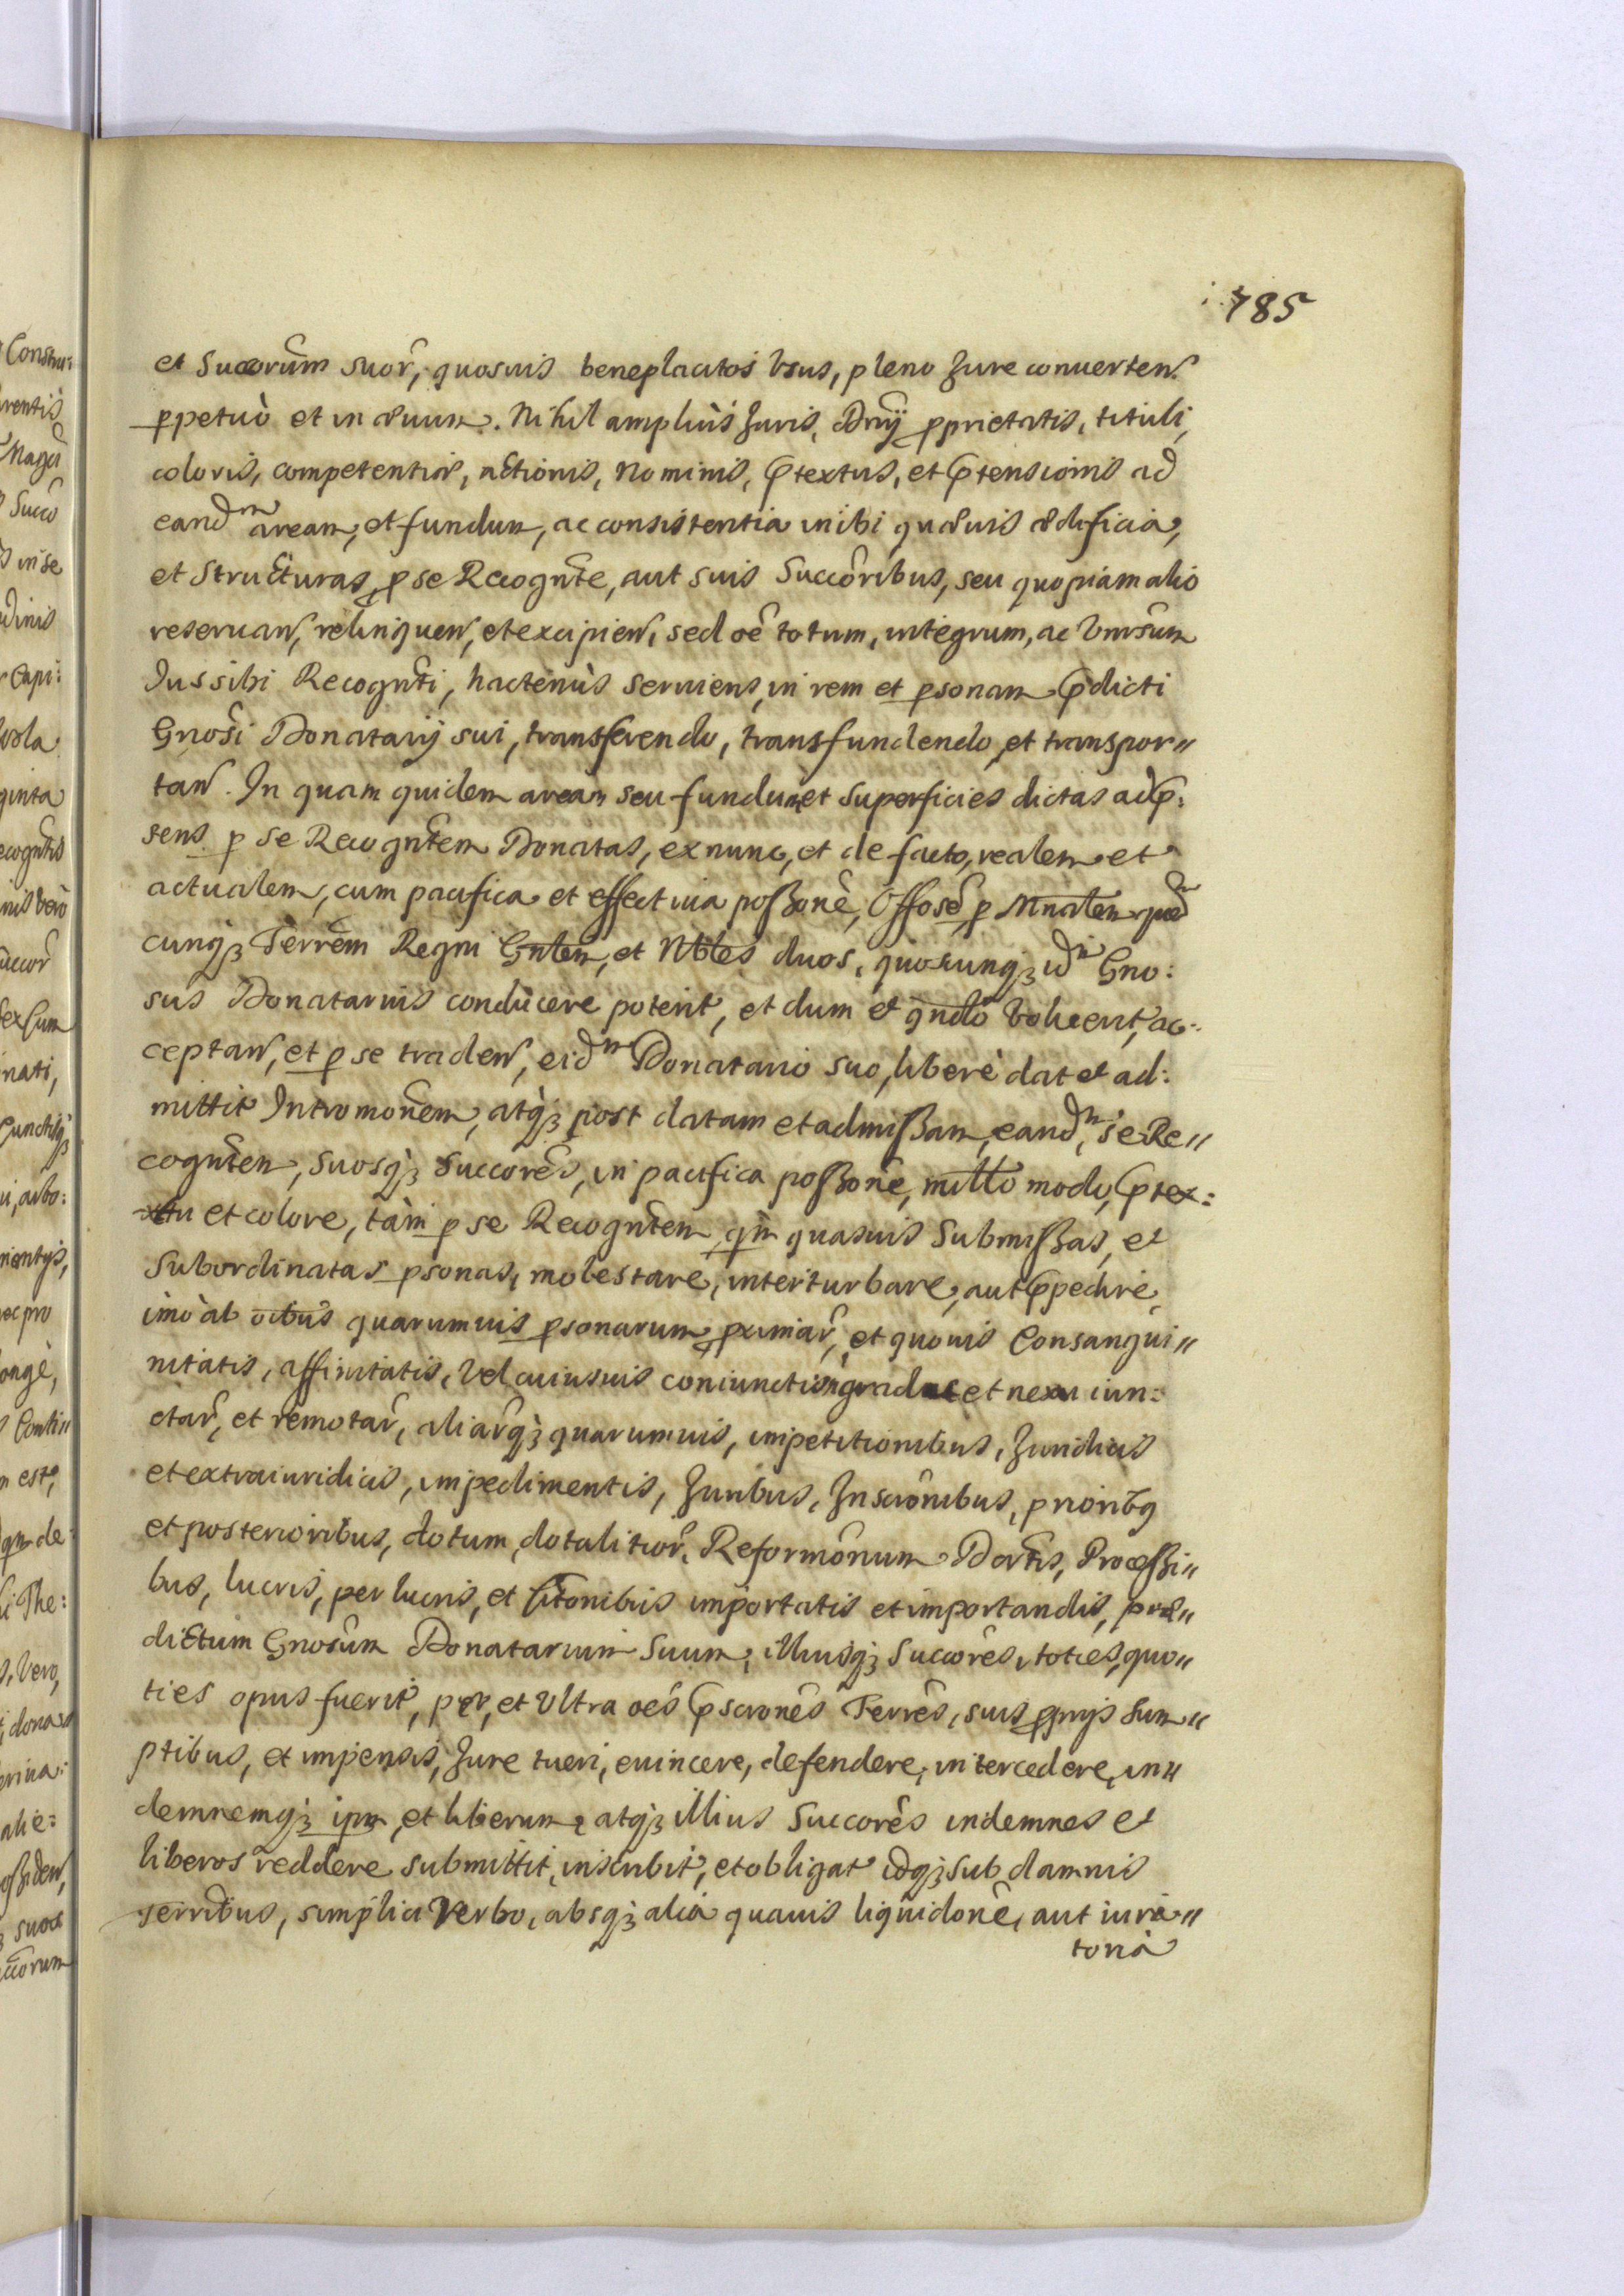 785
et Succorum suor, quosuis beneplacitos Vsus, pleno Jure conuerten.
ppetuò et in æuum. Nihil ampliùs Juris, Dnij pprietatis, tituli,
coloris, competentiæ, actionis, Nominis, Ptextus, et Ptensionis ad
eandm aream, et fundum, ac consistentia inibi quæuis ædificia,
et Structuras, p se Recognte, aut suis Succoribus, seu quopiam alio
reseruan, relinquen, et excipien, sed oe totum, integrum, ac Vnirsum
Jus sibi Recognti, hactenùs seruiens, in rem et psonam Pdicti
Gnosi Donatarij sui, transferendo, transfundendo, et transpor〃
tan. In quam quidem aream seu fundum et Superficies dictas ad P:
sens p se Recogntem Donatas, ex nunc, et de facto, realem et
actualem, cum pacifica et effectiua poßone, Offose p Mnralem quem
cunq3 Terrem Regni Gnlem, et Nbles duos, quoscunq3 idm Gno:
sus Donatarius conducere poterit, et dum et qndo Voluerit, ac:
ceptan, et p se traden, eidm Donatario suo, liberè dat et ad:
mittit Intromonem, atq3 post datam et admißam, eandm, se Re〃
cogntem, suosq3 Succores, in pacifica poßone, nullo modo, Ptex:
tu et colore, tàm p se Recogntem qm quasuis Submißas, et
Subordinatas psonas, molestare, interturbare, aut Ppedire,
imò ab oibus quarumuis psonarum pximar, et quouis Consangui〃
nitatis, affinitatis, Vel cuiusuis coniunctionis gradu et nexu iun:
ctar, et remotar, aliarq3 quarumuis, impetitionibus, Juridicis
et extraiuridicis, impedimentis, Juribus, Inscronibus, priorib9
et posterioribus, dotum, dotalitior, Reformonum Dortis, Proceßi〃
bus, lucris, per lucris, et Citonibus importatis et importandis, præ〃
dictum Gnosum Donatarium Suum, illiusq3 Succores, toties, quo〃
ties opus fuerit, per, et Vltra oes Pscrones Terres, suis pprijs sum〃
ptibus, et impensis, Jure tueri, euincere, defendere, intercedere, in〃
demnemq3 ipm, et liberum, atq3 illius Succores indemnes et
liberos reddere submittit, inscribit, et obligat idq3 sub damnis
terridibus, simplici Verbo, absq3 alia quauis liquidone, aut iura〃
toria